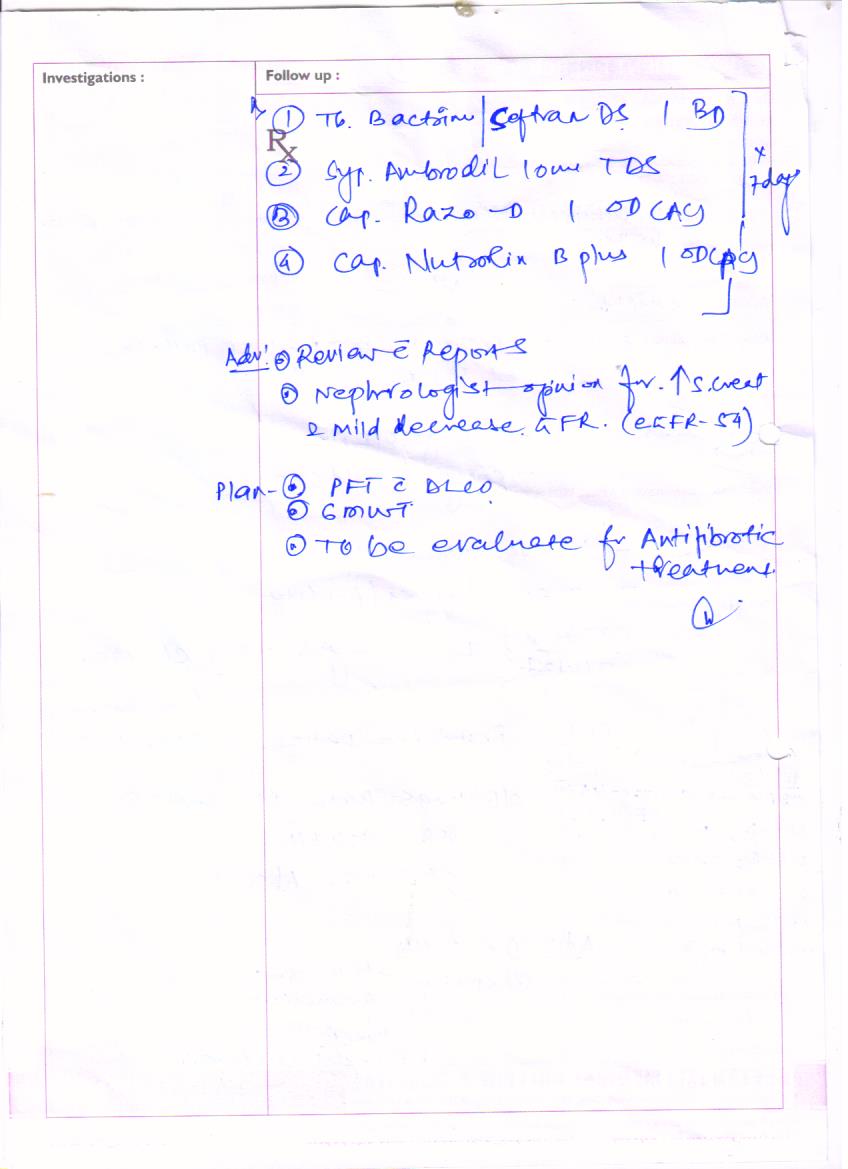 Investigations :
Follow up :
Rx
① Tb. Bactrim / Septran DS 1 BD
② Syp. Ambrodil 10ml TDS
③ Cap. Razo-D 1 OD CAC
④ Cap. Nutrolin B plus 1 OD CAC
x 7days
Adv: Review c̄ Reports
Nephrologist opinion for ↑ S.creat
& Mild decrease GFR. (eGFR-54)
Plan- PFT c̄ DLCO
6MWT
To be evaluate for Antifibrotic
treatment